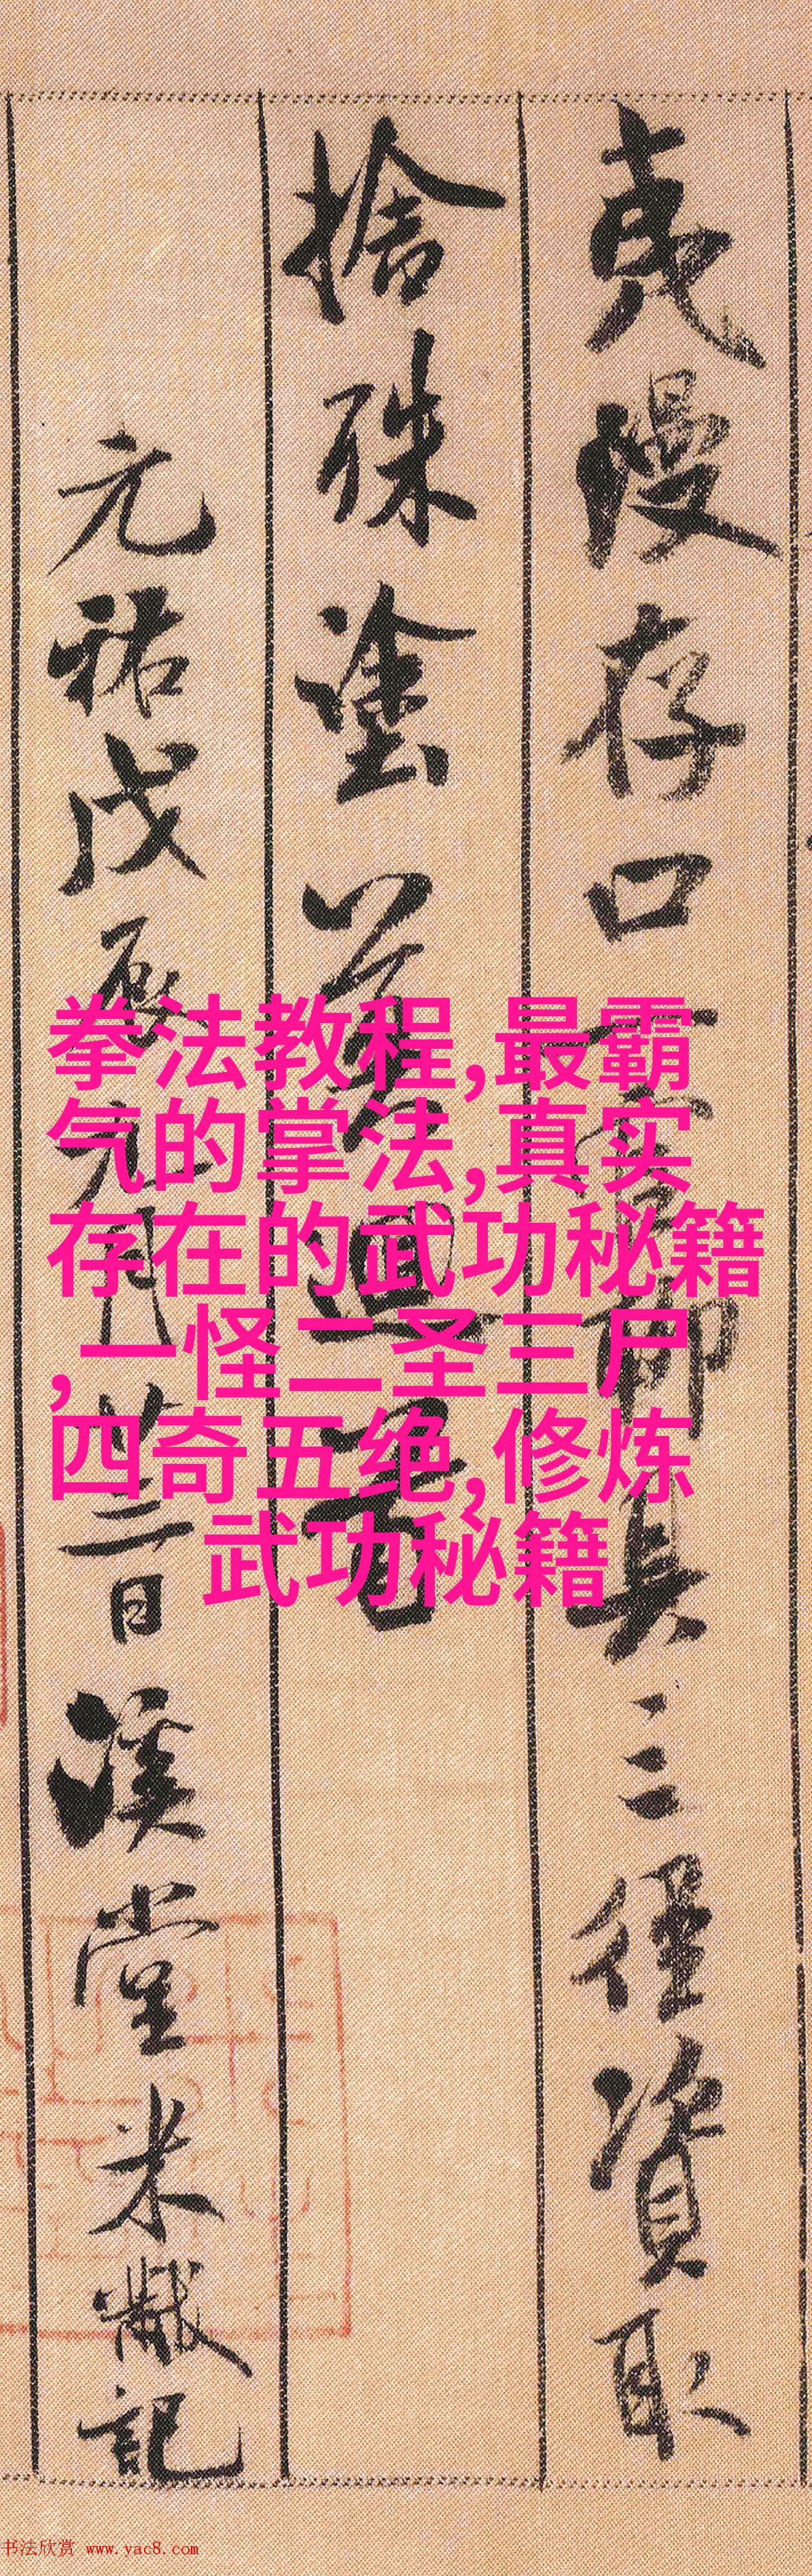 夷漫存口
具三径資取
捨殊塗
迴
元祐戊辰九月廿三日溪堂米黻記
拳法教程,最霸
气的掌法,真实
存在的武功秘籍
,一怪二圣三尸
四奇五绝,修炼
武功秘籍
书法欣赏 www.yac8.com